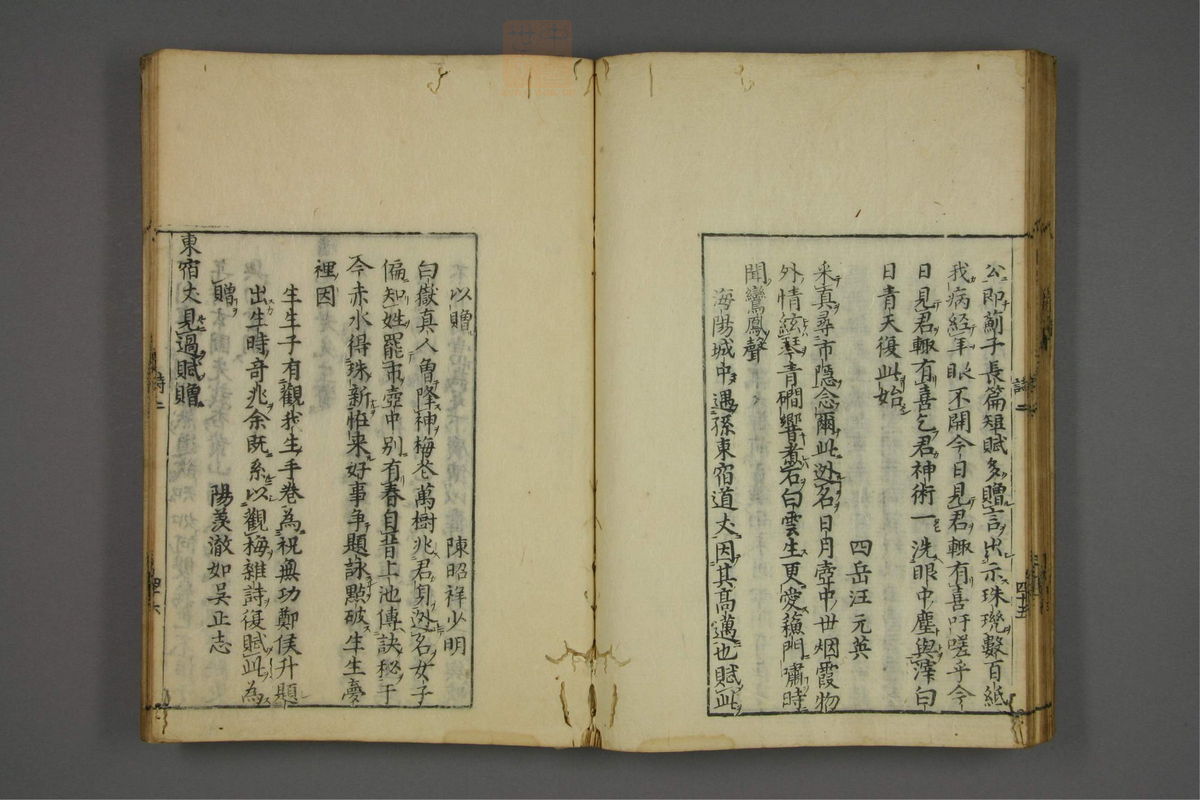 公即薊子長篇短賦多贈言出示珠璣數百紙
我病經年眼不開今日見君輙有喜吁嗟乎今
日見君輙有喜乞君神術一洗眼中塵與滓白
日青天復此始
四岳汪元英
采真尋市隱念爾此逃名日月壺中世烟霞物
外情絃琴青磵響煮石白雲生更愛穐門嘯時
聞鸞鳳聲
海陽城中遇孫東宿道丈因其高邁也賦此
以贈
陳昭祥少明
白嶽真人會降神梅花萬樹兆君身逃名女子
偏知姓罷市壺中別有春自昔上池傳訣秘于
今赤水得珠新怕来好事争題詠點破生生夢
裡因
生生子有觀我生手卷為祝無功鄭侯升題
出生時奇兆余既系以觀梅雜詩復賦此為
贈
陽羨澈如吴正志
東宿丈見過賦贈
詩二
四十五
詩二